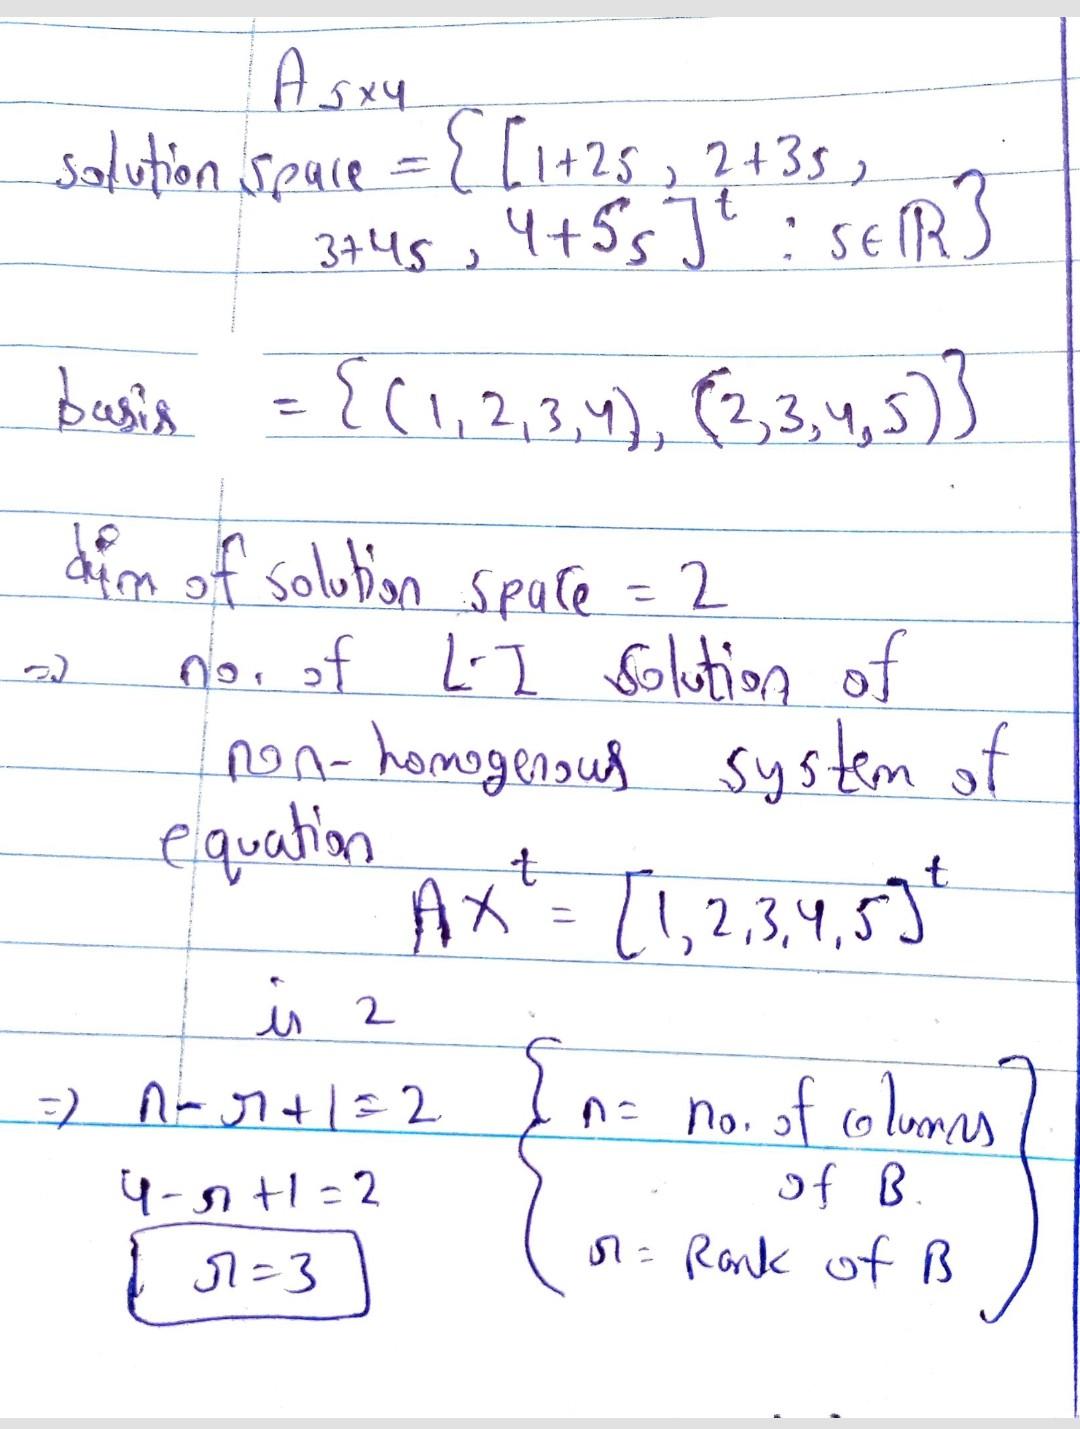 A 5x4
solution space = { [1+2s, 2+3s,
3+4s, 4+5s]^t : s∈ℝ}
basis = {(1,2,3,4), (2,3,4,5)}
dim of solution space = 2
=> no. of L·I solution of
non-homogenous system of
equation
AX^t = [1,2,3,4,5]^t
is 2
=> n-r+1=2 { n = no. of columns
4-r+1=2 of B.
r=3 r = Rank of B }